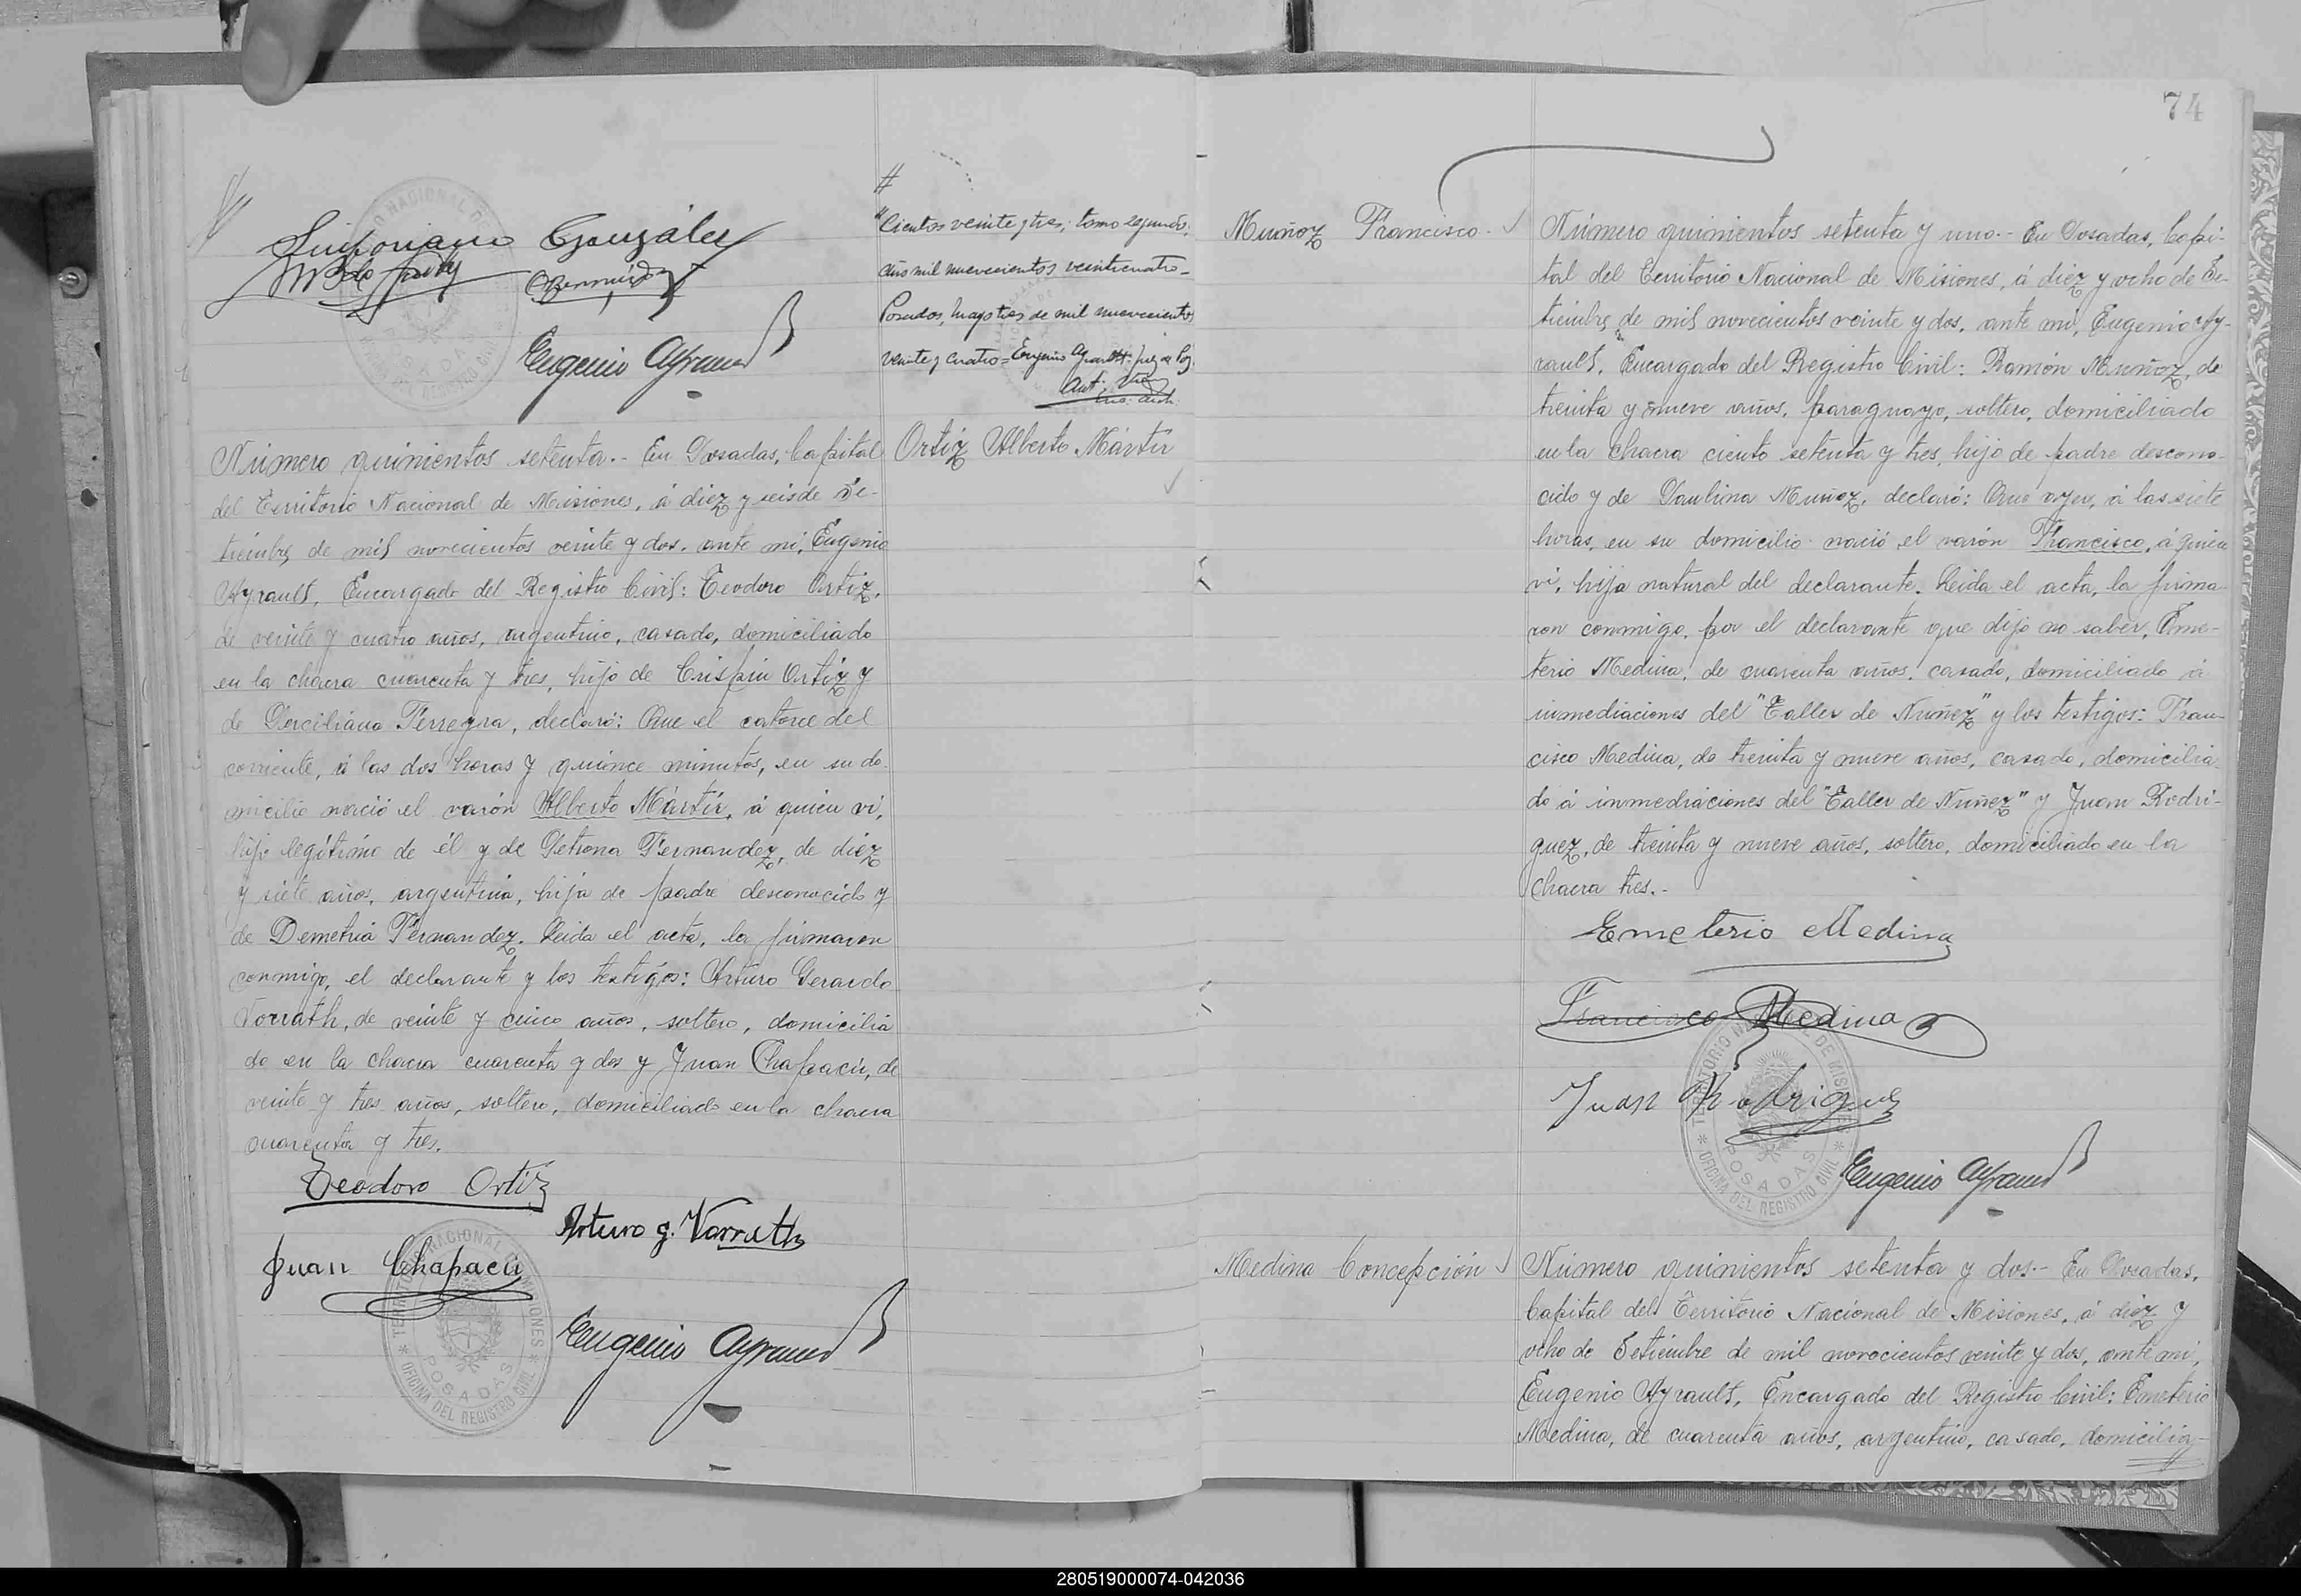 Sinforiano González
Eugenio Ayrault
#
"cientos veinte y tres, tomo segundo,
año mil novecientos veinticuatro=
Posadas, mayo tres de mil novecientos
veinte y cuatro= Eugenio Ayrault. Juez de Paz.
Número quinientos setenta.- En Posadas, Capital
del Territorio Nacional de Misiones, á diez y seis de Se-
tiembre de mil novecientos veinte y dos, ante mi, Eugenio
Ayrault, Encargado del Registro Civil: Teodoro Ortiz,
de veinte y cuatro años, argentino, casado, domiciliado
en la chacra cuarenta y tres, hijo de Crispin Ortiz y
de Porciliana Ferreyra, declaró: Que el catorce del
corriente, á las dos horas y quince minutos, en su do-
micilio nació el varón Alberto Mártir, á quien vi,
hijo legítimo de él y de Petrona Fernandez, de diez
y siete años, argentina, hija de padre desconocido y
de Demetria Fernandez. Leida el acta, la firmaron
conmigo, el declarante y los testigos: Arturo Gerardo
Vorrath, de veinte y cinco años, soltero, domicilia
do en la chacra cuarenta y dos y Juan Chapacú, de
veinte y tres años, soltero, domiciliado en la chacra
cuarenta y tres.
Ortiz Alberto Mártir
Teodoro Ortiz
Arturo g. Vorrath
Juan Chapacú
Eugenio Ayrault
TERRITORIO NACIONAL DE MISIONES
POSADAS
OFICINA DEL REGISTRO CIVIL
74
Muñoz Francisco.
Número quinientos setenta y uno.- En Posadas, Capi-
tal del Territorio Nacional de Misiones, á diez y ocho de Se-
tiembre de mil novecientos veinte y dos, ante mi, Eugenio Ay-
rault, Encargado del Registro Civil: Ramón Muñoz, de
treinta y nueve años, paraguayo, soltero, domiciliado
en la chacra ciento setenta y tres, hijo de padre descono-
cido y de Paulina Muñoz, declaró: Que ayer, á las siete
horas, en su domicilio nació el varón Francisco, á quien
vi, hijo natural del declarante. Leida el acta, la firma-
ron conmigo, por el declarante que dijo no saber, Eme-
terio Medina, de cuarenta años, casado, domiciliado á
inmediaciones del "Taller de Nuñez" y los testigos: Fran-
cisco Medina, de treinta y nueve años, casado, domicilia-
do á inmediaciones del "Taller de Nuñez" y Juan Rodri-
guez, de treinta y nueve años, soltero, domiciliado en la
chacra tres.-
Emeterio Medina
Francisco Medina
Juan Rodriguez
Eugenio Ayrault
TERRITORIO NACIONAL DE MISIONES
POSADAS
OFICINA DEL REGISTRO CIVIL
Medina Concepción
Número quinientos setenta y dos.- En Posadas,
Capital del Territorio Nacional de Misiones, á diez y
ocho de Setiembre de mil novecientos veinte y dos, ante mi,
Eugenio Ayrault, Encargado del Registro Civil: Emeterio
Medina, de cuarenta años, argentino, casado, domicilia-
280519000074-042036